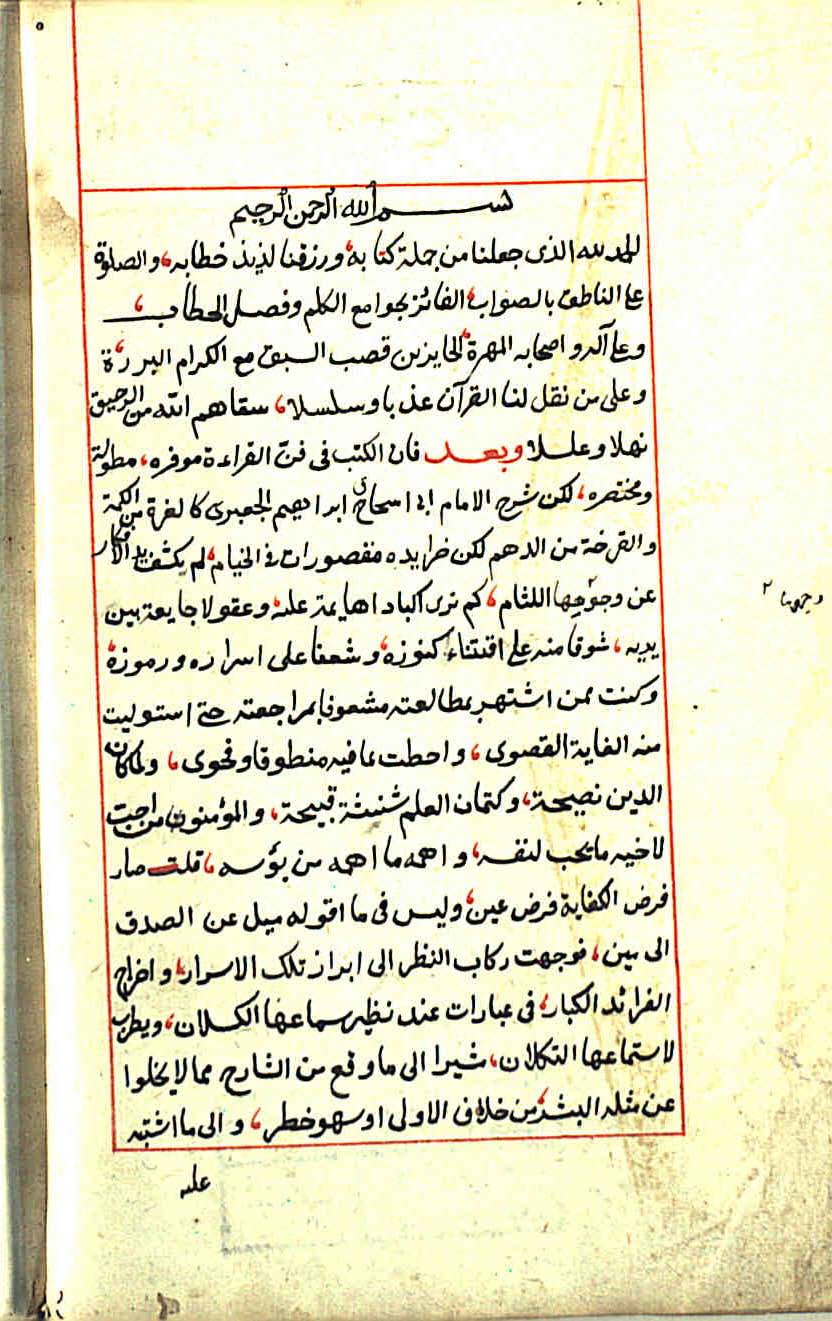 بسم الله الرحمن الرحيم
الحمد لله الذى جعلنا من حملة كتابه، ورزقنا لذيذ خطابه، والصلوة
على الناطق بالصواب، الفائز بجوامع الكلم وفصل الخطاب،
وعلى آله واصحابه المهرة، الحايزين قصب السبق مع الكرام البررة،
وعلى من نقل لنا القرآن عذبا وسلسلا، سقاهم الله من الرحيق
نهلا وعللا وبعد فان الكتب فى فن القراءة موفره، مطولة
ومختصره، لكن شرح الامام ابى اسحاق ابراهيم الجعبرى كالغرة من الكمة
والقرحة من الدهم لكن خرايده مقصورات فى الخيام، لم يكشف يد الافكار
عن وجوهها اللثام، كم ترى اكبادا هايمة عليه، وعقولا جايعة بين
يديه، شوقا منه على اقتناء كنوزه، وشعفا على اسراره ورموزه،
وكنت ممن اشتهر بمطالعته مشعوفا بمراجعته حتى استوليت
منه الغاية القصوى، واحطت بما فيه منطوقا وفحوى، ولما كان
الدين نصيحة، وكتمان العلم شنشنة قبيحة، والمؤمنون من احب
لاخيه ما يحب لنفسه، واهمه ما اهمه من بؤسه، قلت صار
فرض الكفاية فرض عين، وليس فى ما اقوله ميل عن الصدق
الى مين، فوجهت ركاب النظر الى ابراز تلك الاسرار، واخراج
الفرائد الكبار، فى عبارات عند نظير سماعها الكسلان، ويطرب
لاستماعها الثكلان، مشيرا الى ما وقع من الشارح مما لا يخلوا
عن مثله البشر، من خلاف الاولى او سهو خطر، والى ما اشتبه
عليه
وجوهها ٢